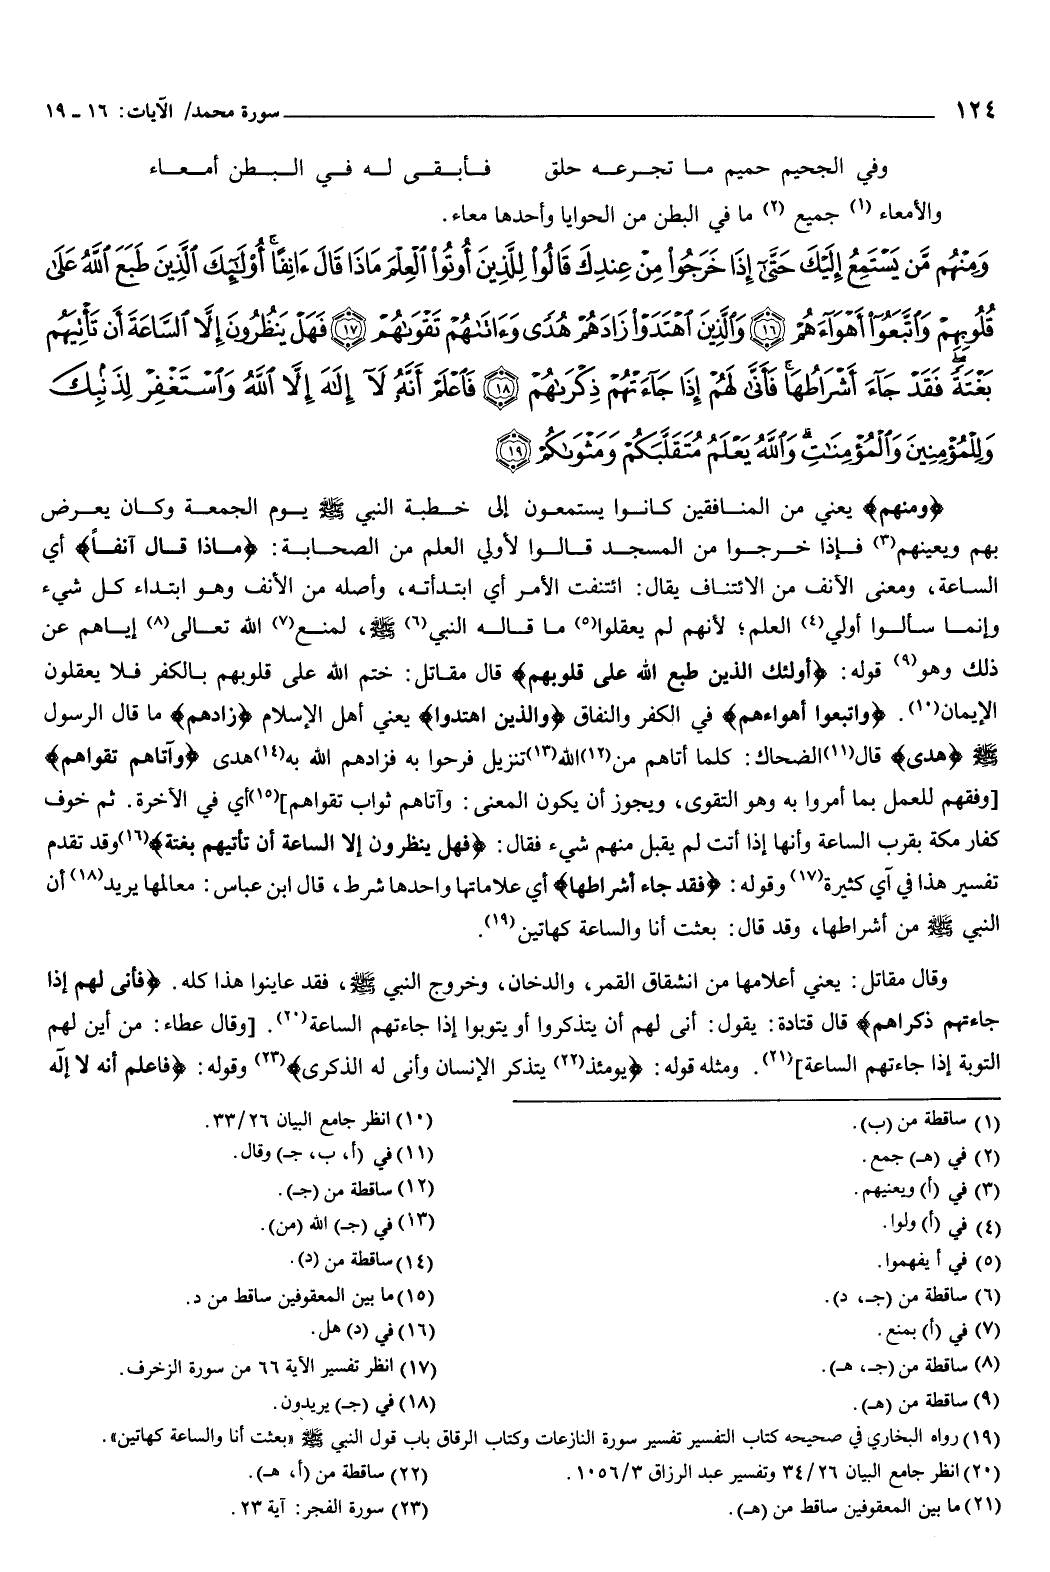 ١٢٤ سورة محمد/ الآيات: ١٦ ـ ١٩
وفي الجحيم حميم مـا تجـرعـه حلق فـأبـقـى لـه فـي الـبـطن أمـعـاء
والأمعاء (١) جميع (٢) ما في البطن من الحوايا وأحدها معاء.
وَمِنْهُم مَّن يَسْتَمِعُ إِلَيْكَ حَتَّىٰٓ إِذَا خَرَجُوا۟ مِنْ عِندِكَ قَالُوا۟ لِلَّذِينَ أُوتُوا۟ ٱلْعِلْمَ مَاذَا قَالَ ءَانِفًا ۚ أُو۟لَٰٓئِكَ ٱلَّذِينَ طَبَعَ ٱللَّهُ عَلَىٰ
قُلُوبِهِمْ وَٱتَّبَعُوٓا۟ أَهْوَآءَهُمْ ١٦ وَٱلَّذِينَ ٱهْتَدَوْا۟ زَادَهُمْ هُدًى وَءَاتَىٰهُمْ تَقْوَىٰهُمْ ١٧ فَهَلْ يَنظُرُونَ إِلَّا ٱلسَّاعَةَ أَن تَأْتِيَهُم
بَغْتَةً ۖ فَقَدْ جَآءَ أَشْرَاطُهَا ۚ فَأَنَّىٰ لَهُمْ إِذَا جَآءَتْهُمْ ذِكْرَىٰهُمْ ١٨ فَٱعْلَمْ أَنَّهُۥ لَآ إِلَٰهَ إِلَّا ٱللَّهُ وَٱسْتَغْفِرْ لِذَنۢبِكَ
وَلِلْمُؤْمِنِينَ وَٱلْمُؤْمِنَٰتِ ۗ وَٱللَّهُ يَعْلَمُ مُتَقَلَّبَكُمْ وَمَثْوَىٰكُمْ ١٩
﴿ومنهم﴾ يعني من المنـافقين كـانـوا يستمعـون إلى خـطبـة النبي ﷺ يـوم الجمعـة وكـان يعـرض
بهم ويعينهم(٣) فـإذا خـرجـوا من المسجـد قـالـوا لأولي العلم من الصحـابـة: ﴿مـاذا قـال آنفـاً﴾ أي
السـاعـة، ومعنى الآنف من الائتنـاف يقال: ائتنفت الأمـر أي ابتـدأتـه، وأصله من الأنف وهـو ابتـداء كـل شيء
وإنمـا سـألـوا أولي(٤) العلم؛ لأنهم لم يعقلوا(٥) مـا قـالـه النبي(٦) ﷺ، لمنـع(٧) الله تعـالى(٨) إيـاهم عن
ذلك وهو(٩) قوله: ﴿أولئك الذين طبع الله على قلوبهم﴾ قال مقـاتل: ختم الله على قلوبهم بـالكفر فـلا يعقلون
الإيمان(١٠). ﴿واتبعوا أهواءهم﴾ في الكفر والنفاق ﴿والذين اهتدوا﴾ يعني أهل الإسلام ﴿زادهم﴾ ما قال الرسول
ﷺ ﴿هدى﴾ قال(١١)الضحاك: كلما أتاهم من(١٢)الله(١٣)تنزيل فرحوا به فزادهم الله به(١٤)هدى ﴿وآتاهم تقواهم﴾
[وفقهم للعمل بما أمروا به وهو التقوى، ويجوز أن يكون المعنى: وآتاهم ثواب تقواهم](١٥)أي في الآخرة. ثم خوف
كفار مكة بقرب الساعة وأنها إذا أتت لم يقبل منهم شيء فقال: ﴿فهل ينظرون إلا الساعة أن تأتيهم بغتة﴾(١٦)وقد تقدم
تفسير هذا في آي كثيرة(١٧) وقوله: ﴿فقد جاء أشراطها﴾ أي علاماتها واحدها شرط، قال ابن عباس: معالمها يريد(١٨) أن
النبي ﷺ من أشراطها، وقد قال: بعثت أنا والساعة كهاتين(١٩).
وقال مقاتل: يعني أعلامها من انشقاق القمر، والدخان، وخروج النبي ﷺ، فقد عاينوا هذا كله. ﴿فأنى لهم إذا
جاءتهم ذكراهم﴾ قال قتادة: يقول: أنى لهم أن يتذكروا أو يتوبوا إذا جاءتهم الساعة(٢٠). [وقال عطاء: من أين لهم
التوبة إذا جاءتهم الساعة](٢١). ومثله قوله: ﴿يومئذ(٢٢) يتذكر الإنسان وأنى له الذكرى﴾(٢٣) وقوله: ﴿فاعلم أنه لا إلٰه
(١) ساقطة من (ب).
(٢) في (هـ) جمع.
(٣) في (أ) ويعنيهم.
(٤) في (أ) ولوا.
(٥) في أ يفهموا.
(٦) ساقطة من (جـ، د).
(٧) في (أ) بمنع.
(٨) ساقطة من (جـ، هـ).
(٩) ساقطة من (هـ).
(١٠) انظر جامع البيان ٣٣/٢٦.
(١١) في (أ، ب، جـ) وقال.
(١٢) ساقطة من (جـ).
(١٣) في (جـ) الله (من).
(١٤) ساقطة من (د).
(١٥) ما بين المعقوفين ساقط من د.
(١٦) في (د) هل.
(١٧) انظر تفسير الآية ٦٦ من سورة الزخرف.
(١٨) في (جـ) يريدون.
(١٩) رواه البخاري في صحيحه كتاب التفسير تفسير سورة النازعات وكتاب الرقاق باب قول النبي ﷺ «بعثت أنا والساعة كهاتين».
(٢٠) انظر جامع البيان ٣٤/٢٦ وتفسير عبد الرزاق ١٠٥٦/٣.
(٢١) ما بين المعقوفين ساقط من (هـ).
(٢٢) ساقطة من (أ، هـ).
(٢٣) سورة الفجر: آية ٢٣.